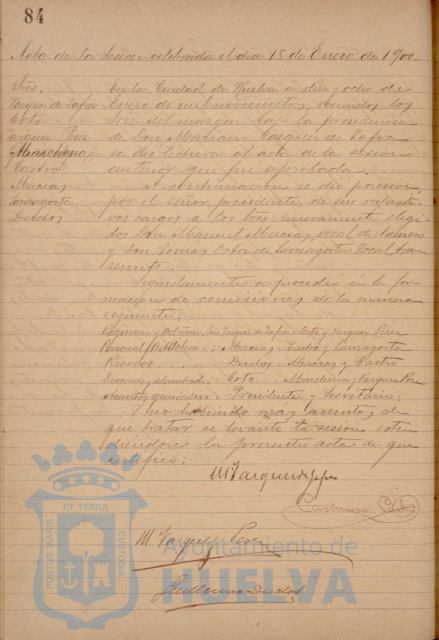 84
Acta de la Sesión celebrada el día 18 de Enero de 1900.
Sres.
Vazquez de Zafra
Coto
Vazquez Perez
Marchena
Castro
Macias
Duclos
En la Ciudad de Huelva a diez y ocho de
Enero de mil novecientos, reunidos los
Sres. del margen bajo la presidencia
de Don Mariano Vazquez de Zafra
se dió lectura al acta de la sesion
anterior que fue aprobada.
A continuacion se dio posesion
por el Señor presidente, de sus respecti
vos cargos a los tres nuevamente elegi
dos Don Manuel Macias, vocal de
y Don Tomas Vocal
Seguidamente se procedió a la for
macion de comisiones de la manera
siguiente,
Vazquez de Zafra - Coto - Vazquez Perez
Personal / Biblioteca Macias - Castro y
Recreos Duclos - Macias y Castro
Decorado y alumbrado Coto Marchena y Vazquez Perez
Presidente y Secretario,
Y no habiendo mas asuntos de
que tratar se levantó la sesion exten
diendose la presente acta de que
certifico:
M Vazquez de Zafra
M Vazquez Perez
Guillermo Duclos
ET TERRÆ
PORTUS MARIS
CUSTODIA
Ayuntamiento de
HUELVA